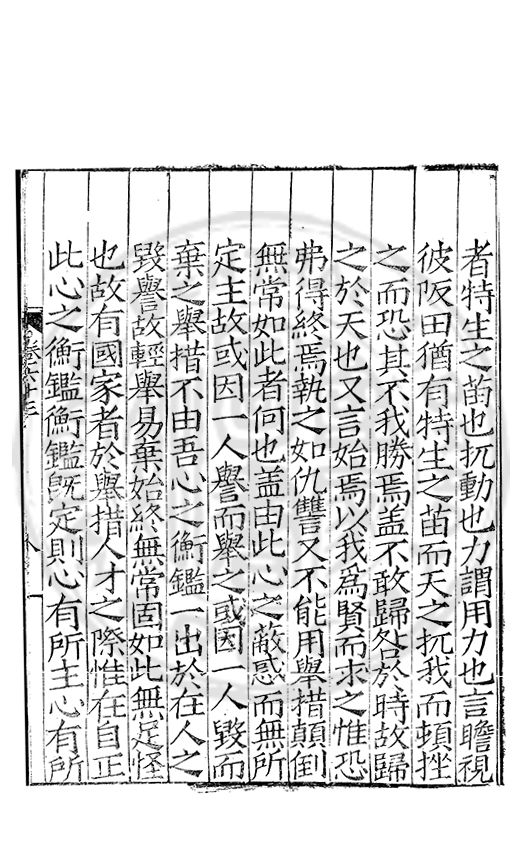 者特生之苗也扤動也力謂用力也言瞻視
彼阪田猶有特生之苗而天之扤我而頓挫
之而恐其不我勝焉盖不敢歸咎於時故歸
之於天也又言始焉以我爲賢而求之惟恐
弗得終焉執之如仇讐又不能用舉措顛倒
無常如此者何也盖由此心之蔽惑而無所
定主故或因一人譽而舉之或因一人毀而
棄之舉措不由吾心之衡鑑一出於在人之
毀譽故輕舉易棄始終無常固如此無足怪
也故有國家者於舉措人才之際惟在自正
此心之衡鑑衡鑑旣定則心有所主心有所